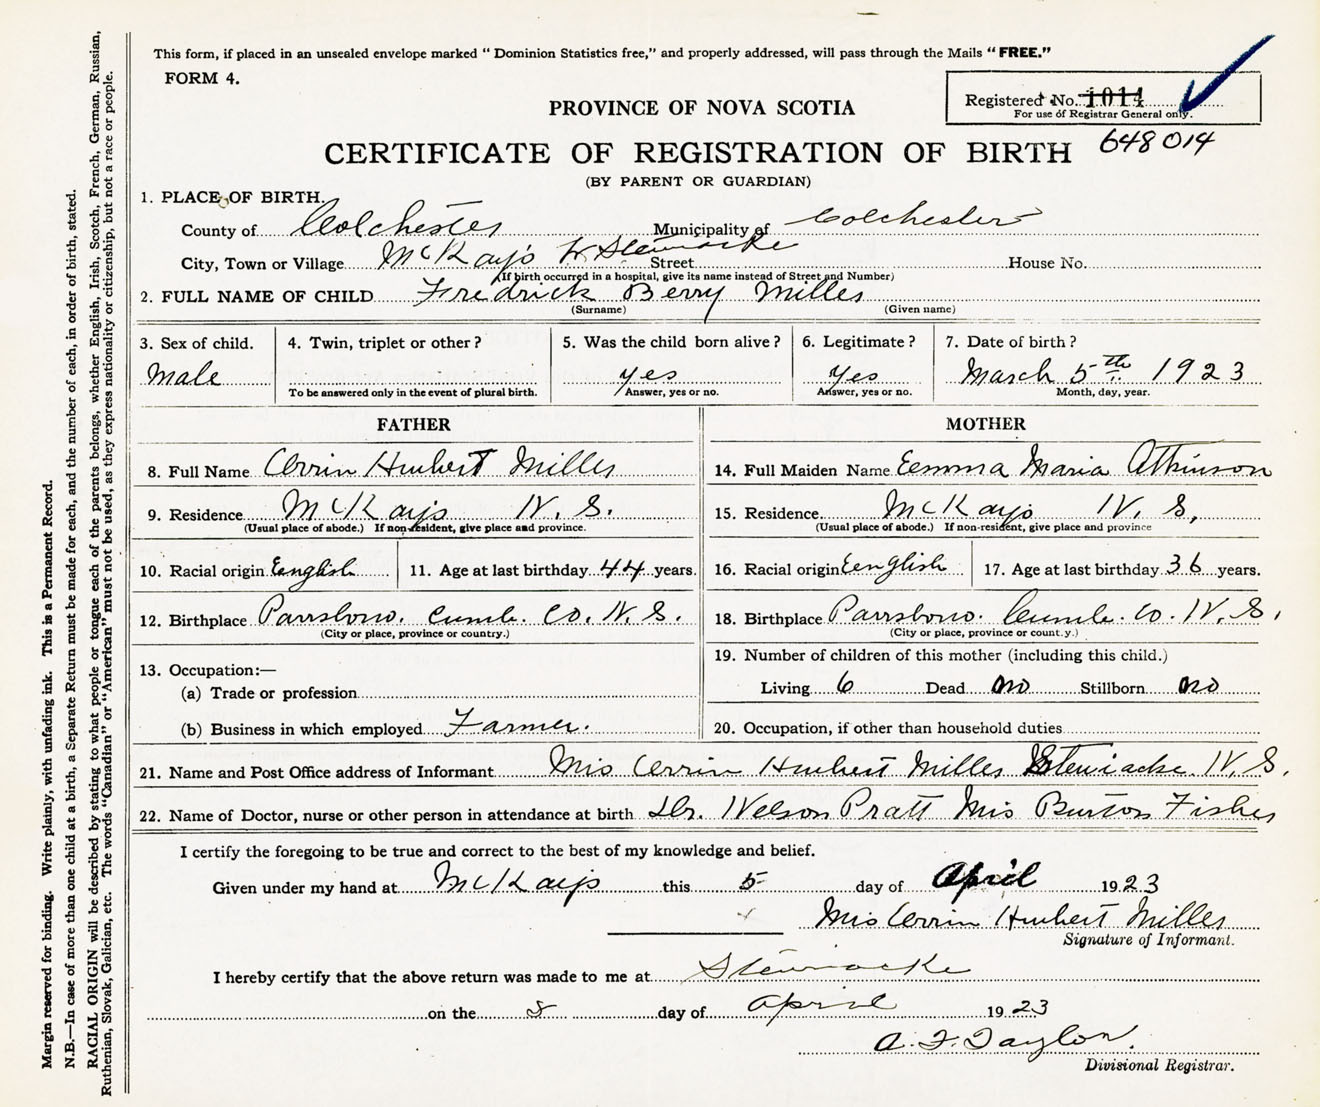 This form, if placed in an unsealed envelope marked “ Dominion Statistics free,” and properly addressed, will pass through the Mails “ FREE.”
FORM 4.
Registered No. 1014
For use of Registrar General only.
648014
PROVINCE OF NOVA SCOTIA
CERTIFICATE OF REGISTRATION OF BIRTH
(BY PARENT OR GUARDIAN)
1. PLACE OF BIRTH.
County of Colchester Municipality of Colchester
City, Town or Village McKays W. Stewiacke Street House No.
(If birth occurred in a hospital, give its name instead of Street and Number)
2. FULL NAME OF CHILD Fredrick Berry Milles
(Surname) (Given name)
3. Sex of child. 4. Twin, triplet or other? 5. Was the child born alive? 6. Legitimate? 7. Date of birth?
Male yes Yes March 5th 1923
To be answered only in the event of plural birth. Answer, yes or no. Answer, yes or no. Month, day, year.
FATHER
8. Full Name Orrin Hurbert Milles
9. Residence McKays N. S.
(Usual place of abode.) If non-resident, give place and province.
10. Racial origin English 11. Age at last birthday 44 years.
12. Birthplace Parrsboro. Cumb. Co. N. S.
(City or place, province or country.)
13. Occupation:—
(a) Trade or profession
(b) Business in which employed Farmer.
MOTHER
14. Full Maiden Name Eemma Maria Atkinson
15. Residence McKays N. S,
(Usual place of abode.) If non-resident, give place and province
16. Racial origin English 17. Age at last birthday 36 years.
18. Birthplace Parrsboro. Cumb. Co. N. S.
(City or place, province or count.y.)
19. Number of children of this mother (including this child.)
Living 6 Dead no Stillborn no
20. Occupation, if other than household duties
21. Name and Post Office address of Informant Mrs Orrin Hurbert Milles Stewiacke. N. S.
22. Name of Doctor, nurse or other person in attendance at birth Dr. Nelson Pratt Mrs Burton Fisher
I certify the foregoing to be true and correct to the best of my knowledge and belief.
Given under my hand at McKays this 5 day of April 1923
Mrs Orrin Hurbert Milles
Signature of Informant.
I hereby certify that the above return was made to me at Stewiacke
on the 8 day of April 1923
A. F. Taylor.
Divisional Registrar.
Margin reserved for binding. Write plainly, with unfading ink. This is a Permanent Record.
N.B.—In case of more than one child at a birth, a Separate Return must be made for each, and the number of each, in order of birth, stated.
RACIAL ORIGIN will be described by stating to what people or tongue each of the parents belongs, whether English, Irish, Scotch, French, German, Russian,
Ruthenian, Slovak, Galician, etc. The words “Canadian” or “American” must not be used, as they express nationality or citizenship, but not a race or people.